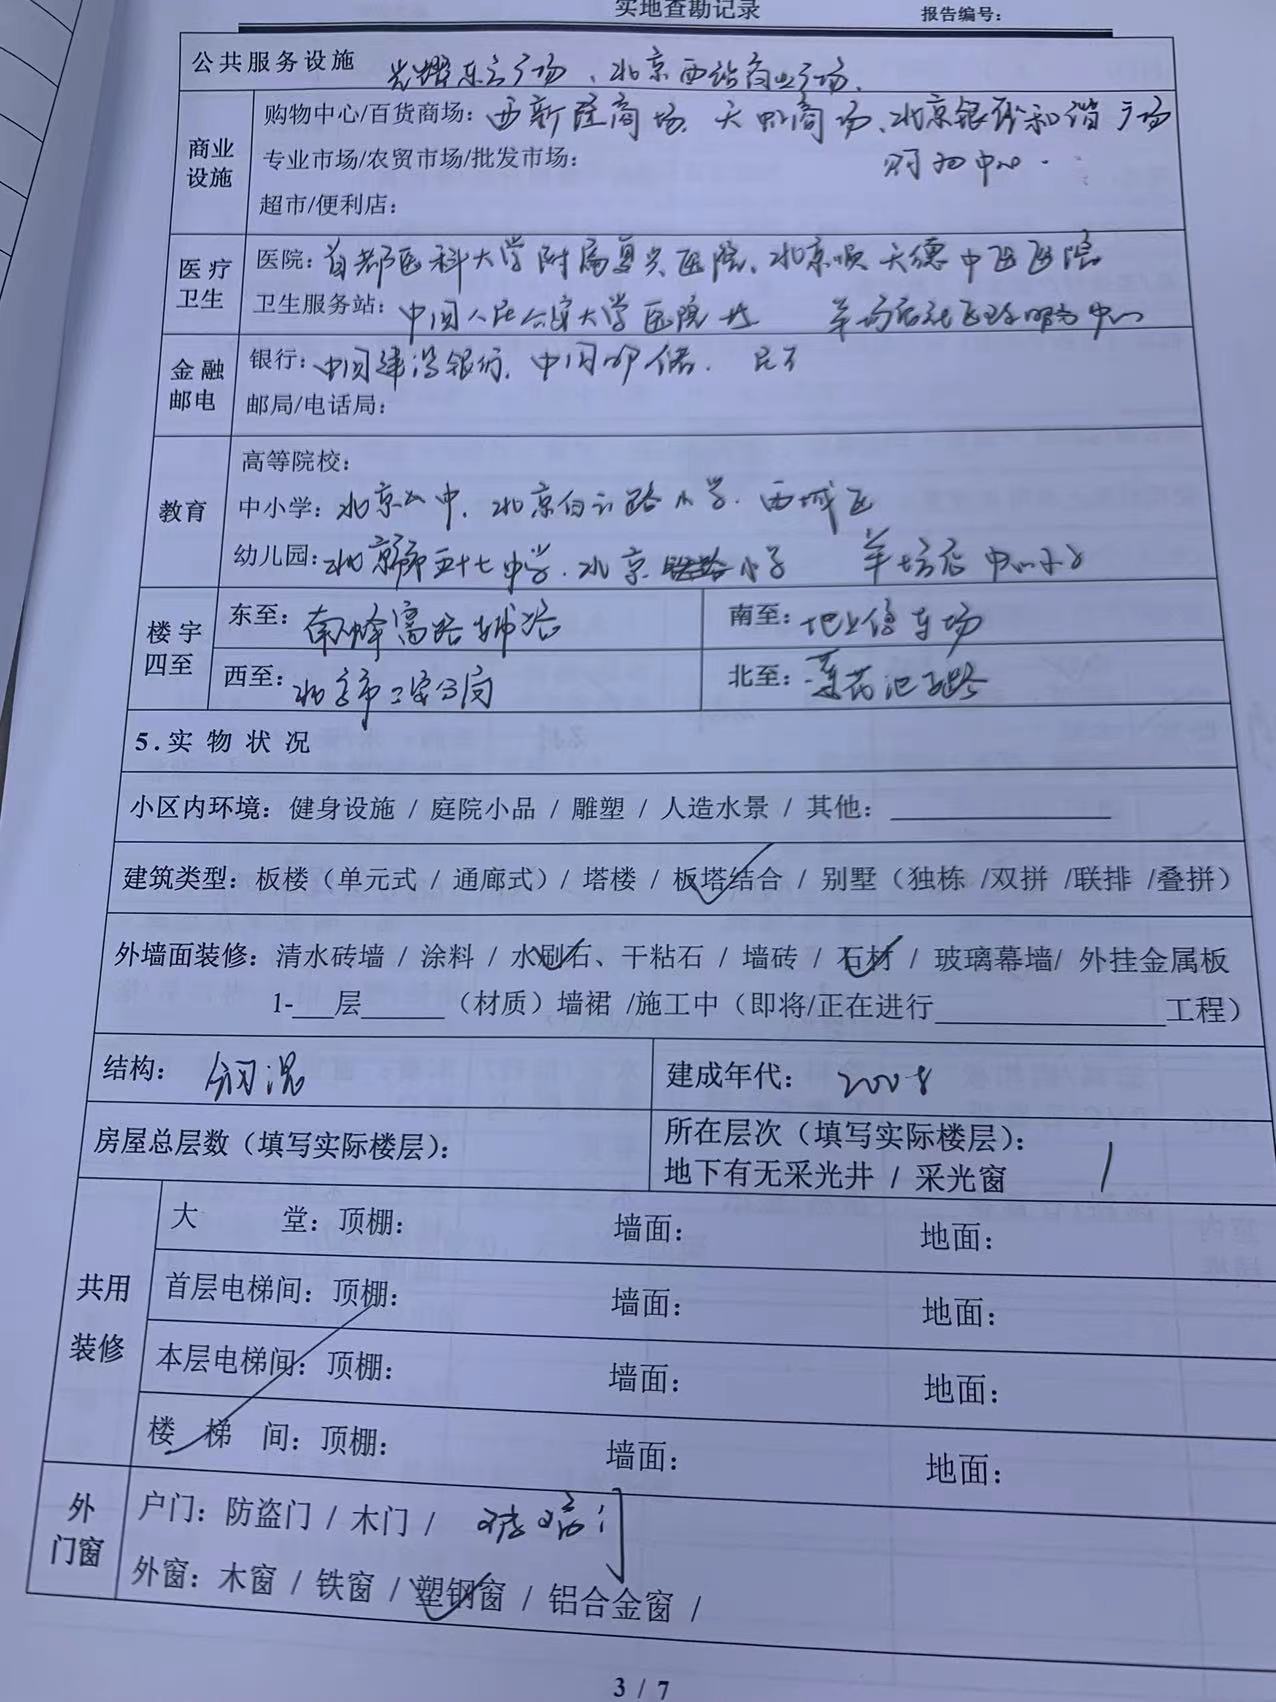 实地查勘记录
报告编号：
公共服务设施 光耀东方广场、北京西站商业广场、
商业设施
购物中心/百货商场：西新隆商场、天虹商场、北京银 和谐广场
购物中心
专业市场/农贸市场/批发市场：
超市/便利店：
医疗卫生
医院：首都医科大学附属复兴医院、北京顺天德中医医院
卫生服务站：中国人民公安大学医院 羊坊店社区 服务中心
金融邮电
银行：中国建设银行、中国邮储、民
邮局/电话局：
教育
高等院校：
中小学：北京 中、北京白云路小学、西城区
幼儿园：北京市五十七中学、北京 小学 羊坊店中心小学
楼宇四至
东至：南蜂窝路辅路
南至：地上停车场
西至：北京市公安
北至：莲花池 路
5.实物状况
小区内环境：健身设施 / 庭院小品 / 雕塑 / 人造水景 / 其他：
建筑类型：板楼（单元式 / 通廊式）/ 塔楼 / 板塔结合 / 别墅（独栋 /双拼 /联排 /叠拼）
外墙面装修：清水砖墙 / 涂料 / 水刷石、干粘石 / 墙砖 / 石材 / 玻璃幕墙/ 外挂金属板
1-___层______（材质）墙裙 /施工中（即将/正在进行________________工程）
结构：钢混
建成年代：2008
房屋总层数（填写实际楼层）：
所在层次（填写实际楼层）： 1
地下有无采光井 / 采光窗
共用装修
大 堂：顶棚： 墙面： 地面：
首层电梯间：顶棚： 墙面： 地面：
本层电梯间：顶棚： 墙面： 地面：
楼 梯 间：顶棚： 墙面： 地面：
外门窗
户门：防盗门 / 木门 / 玻璃门
外窗：木窗 / 铁窗 / 塑钢窗 / 铝合金窗 /
3 / 7